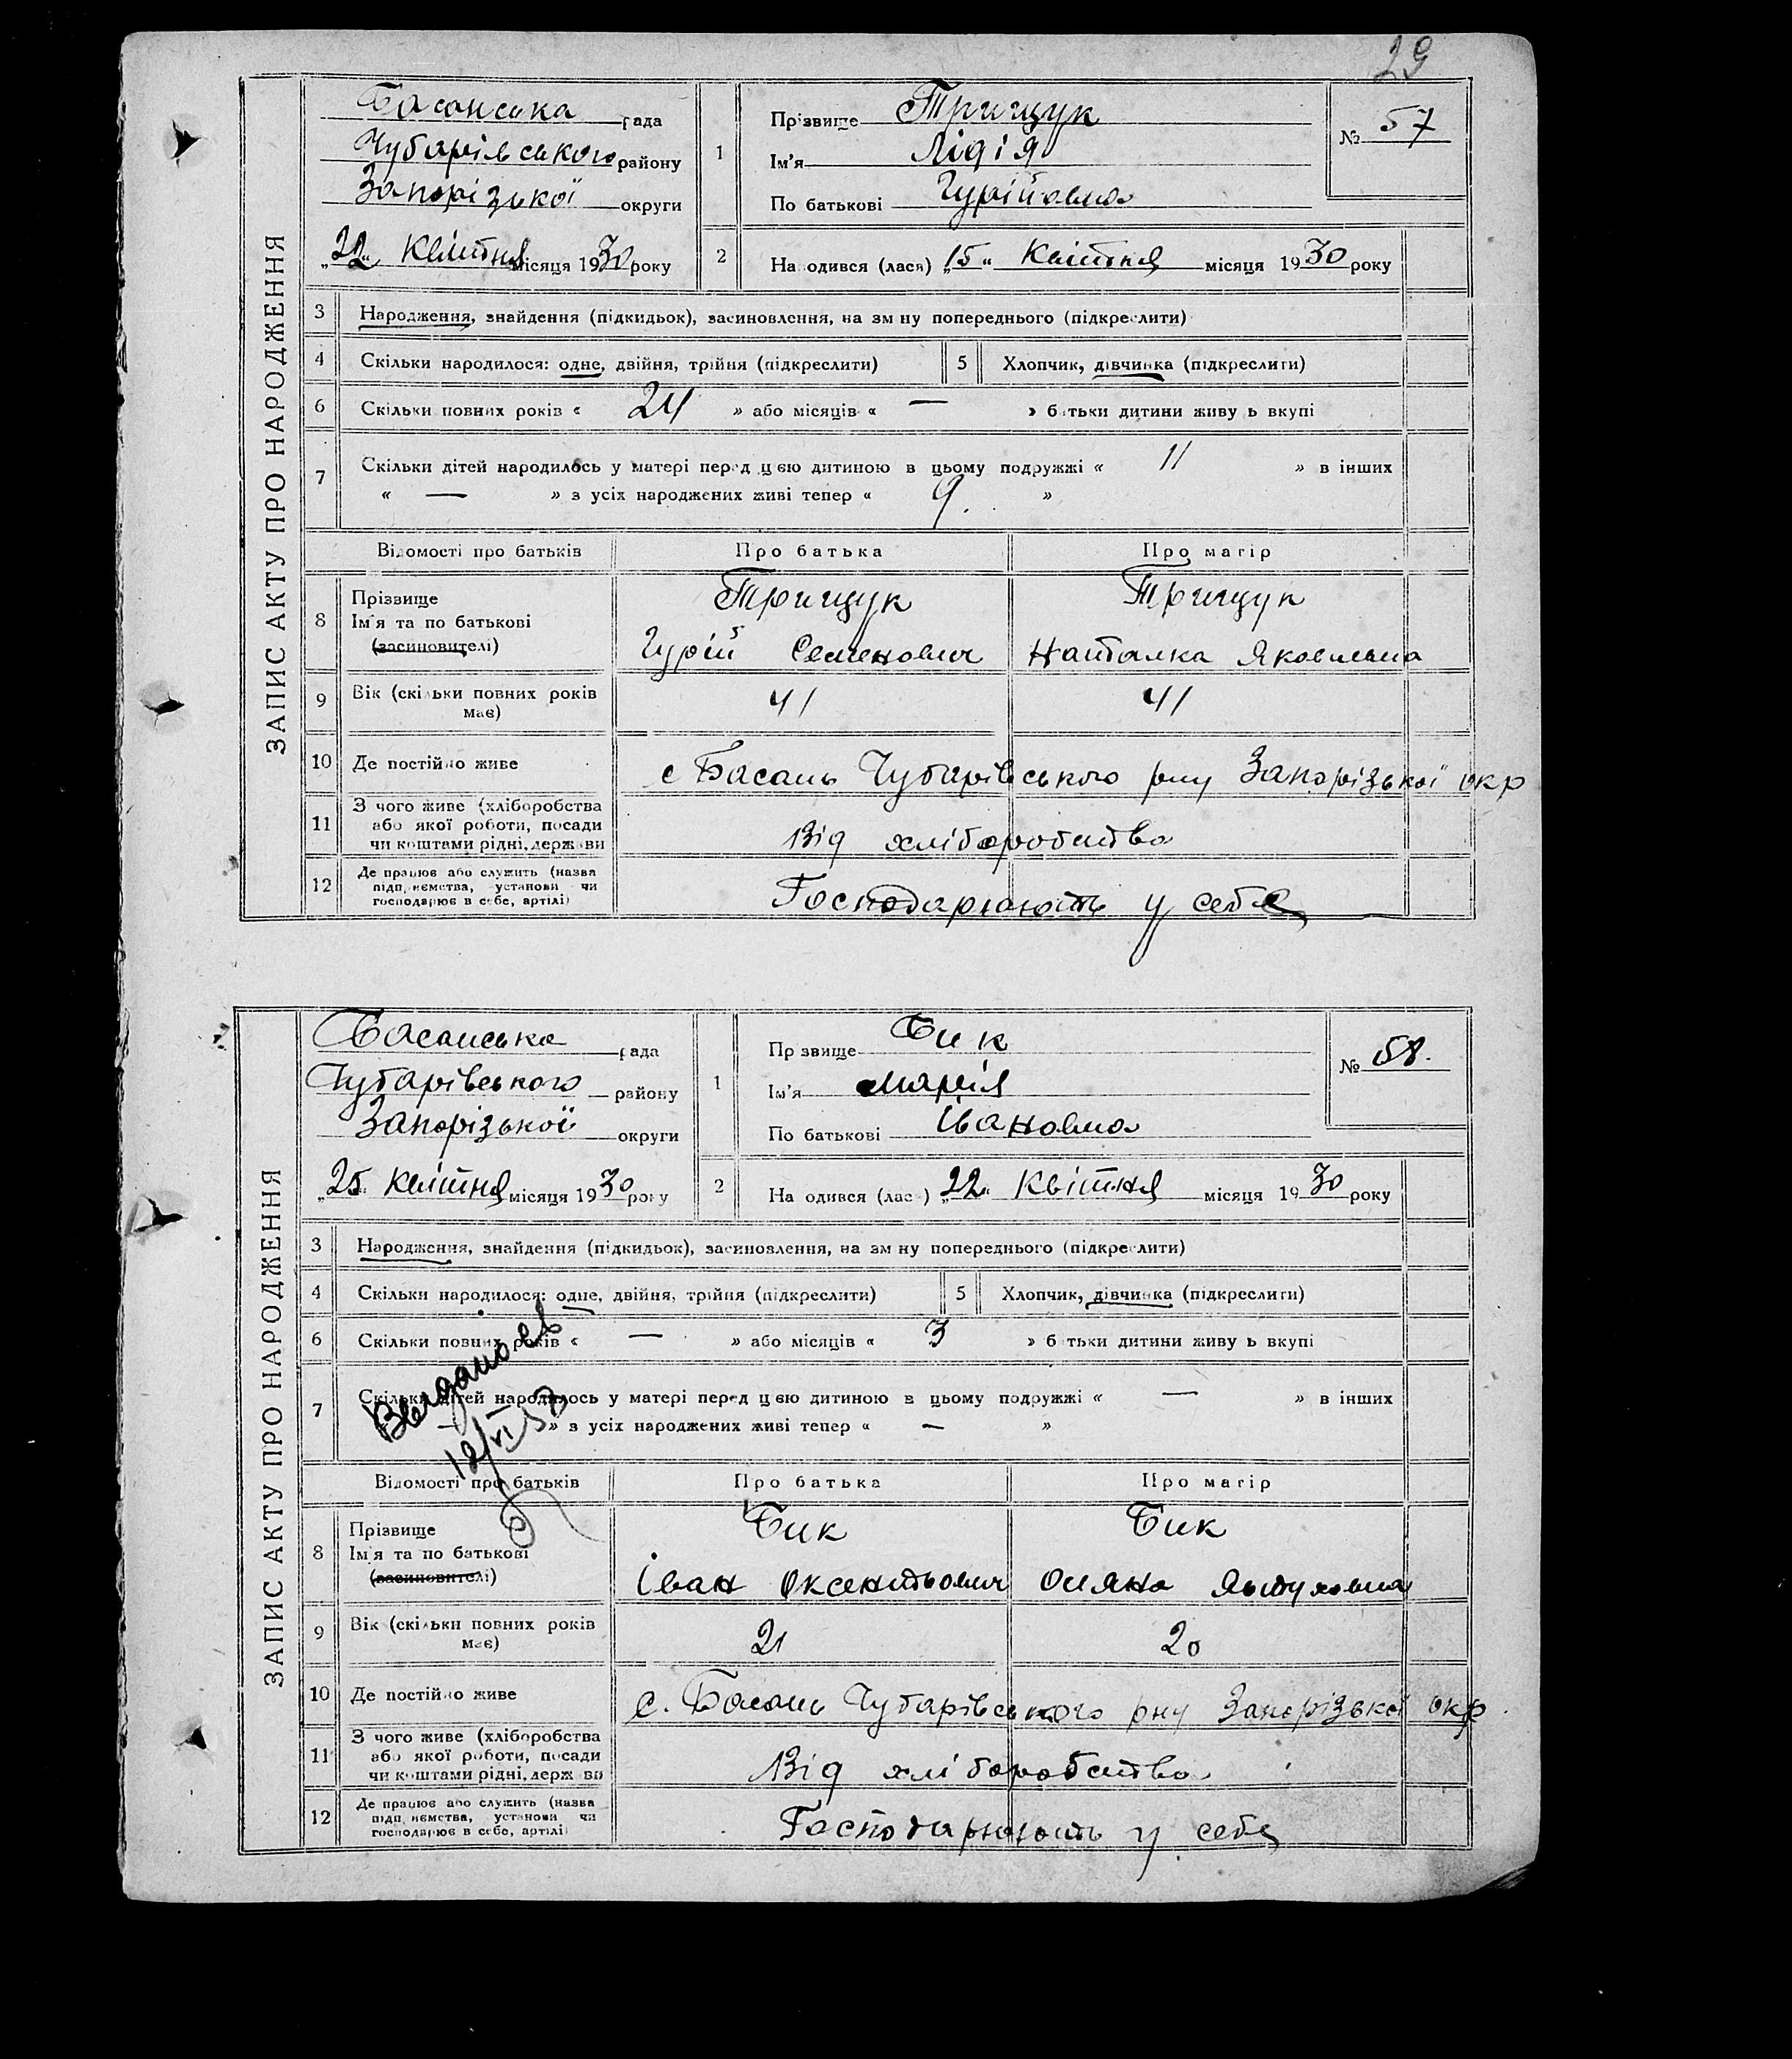 29
ЗАПИС АКТУ ПРО НАРОДЖЕННЯ
Басанська рада
Чубарівського району
Запорізької округи
„22“ Квітня місяця 1930 року
1
Прізвище Трищук
Ім'я Лідія
По батькові Гурійовна
№ 57
2 На одився (лася) „15“ Квітня місяця 1930 року
3 Народження, знайдення (підкидьок), засиновлення, на зм ну попереднього (підкреслити)
4 Скільки народилося: одне, двійня, трійня (підкреслити) 5 Хлопчик, дівчинка (підкреслити)
6 Скільки повних років « 24 » або місяців « — » б тьки дитини живу ь вкупі
7 Скільки дітей народилось у матері перед цією дитиною в цьому подружжі « 11 » в інших
« — » з усіх народжених живі тепер « 9. »
Відомості про батьків Про батька Про матір
8 Прізвище Трищук Трищук
Ім'я та по батькові
(засиновителі) Гурій Семенович Наталка Яковлевна
9 Вік (скільки повних років має) 41 41
10 Де постійно живе с Басань Чубарівського рну Запорізької окр
11 З чого живе (хліборобства
або якої роботи, посади Від хліборобства
чи коштами рідні, держ ви
12 Де працює або служить (назва
підп иємства, установи чи Господарюють у себе
господарює в себе, артілі)
ЗАПИС АКТУ ПРО НАРОДЖЕННЯ
Басанська рада
Чубарівського району
Запорізької округи
„25“ Квітня місяця 1930 року
1
Пр звище Бик
Ім'я Марія
По батькові Івановна
№ 58.
2 На одився (лас ) „22“ Квітня місяця 1930 року
3 Народження, знайдення (підкидьок), засиновлення, на зм ну попереднього (підкреслити)
4 Скільки народилося: одне, двійня, трійня (підкреслити) 5 Хлопчик, дівчинка (підкреслити)
6 Скільки повних років « — » або місяців « 3 » б тьки дитини живу ь вкупі
7 Скільки дітей народилось у матері перед цією дитиною в цьому подружжі « — » в інших
» з усіх народжених живі тепер « — »
Відомості про батьків Про батька Про матір
8 Прізвище Бик Бик
Ім'я та по батькові
(засиновителі) Іван Оксентьович Оияна
9 Вік (скільки повних років має) 21 20
10 Де постійно живе с. Басань Чубарівського рну Запорізької окр
11 З чого живе (хліборобства
або якої роботи, посади Від хліборобства
чи коштами рідні, держ ви
12 Де працює або служить (назва
підп иємства, установи чи Господарюють у себе
господарює в себе, артілі)